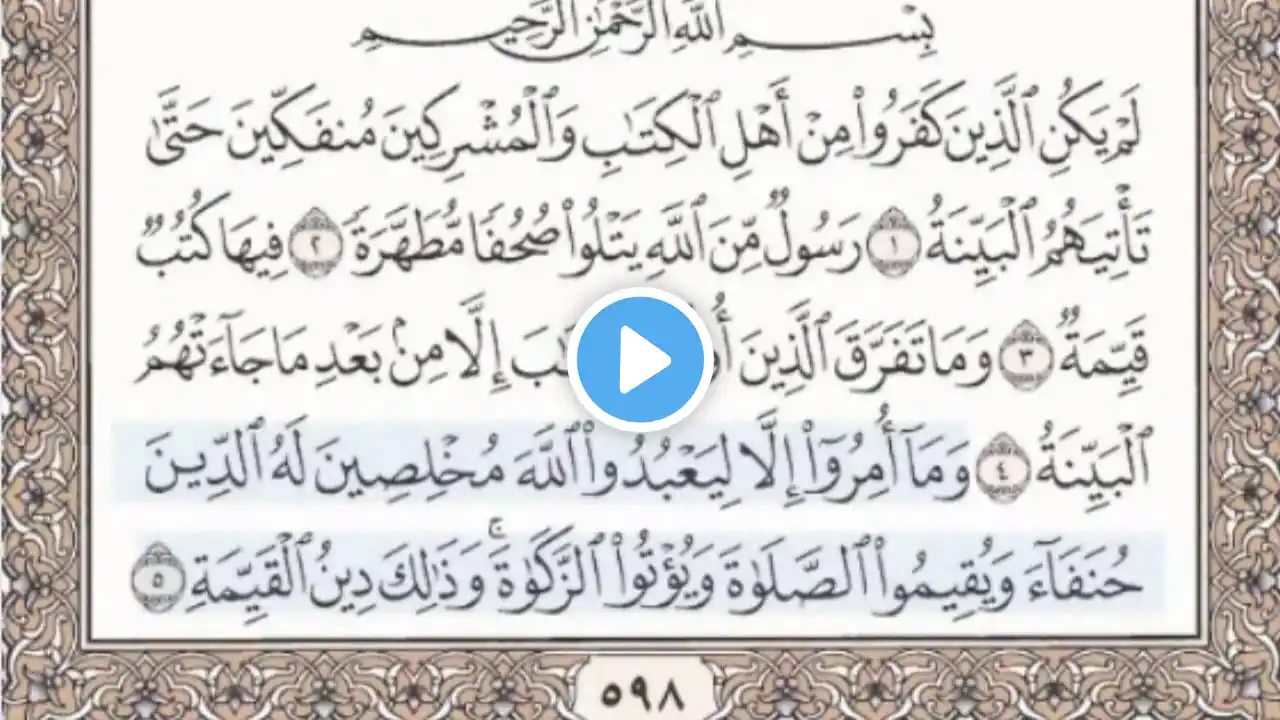 بِسْمِ اللَّهِ الرَّحْمَٰنِ الرَّحِيمِ
لَمْ يَكُنِ ٱلَّذِينَ كَفَرُوا۟ مِنْ أَهْلِ ٱلْكِتَـٰبِ وَٱلْمُشْرِكِينَ مُنفَكِّينَ حَتَّىٰ
تَأْتِيَهُمُ ٱلْبَيِّنَةُ ١ رَسُولٌ مِّنَ ٱللَّهِ يَتْلُوا۟ صُحُفًا مُّطَهَّرَةً ٢ فِيهَا كُتُبٌ
قَيِّمَةٌ ٣ وَمَا تَفَرَّقَ ٱلَّذِينَ إِلَّا مِنۢ بَعْدِ مَا جَآءَتْهُمُ
ٱلْبَيِّنَةُ ٤ وَمَآ أُمِرُوٓا۟ إِلَّا لِيَعْبُدُوا۟ ٱللَّهَ مُخْلِصِينَ لَهُ ٱلدِّينَ
حُنَفَآءَ وَيُقِيمُوا۟ ٱلصَّلَوٰةَ وَيُؤْتُوا۟ ٱلزَّكَوٰةَ ۚ وَذَٰلِكَ دِينُ ٱلْقَيِّمَةِ ٥
٥٩٨